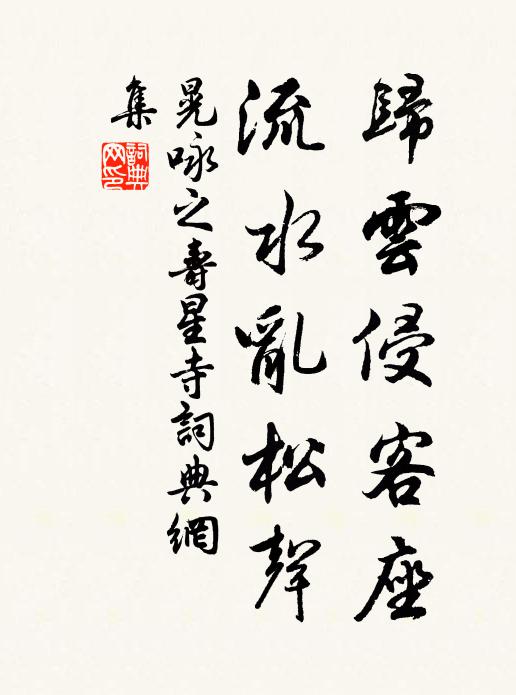 歸雲侵客座
流水亂松聲
晃咏之壽星寺詞典網
集
詞典
网印